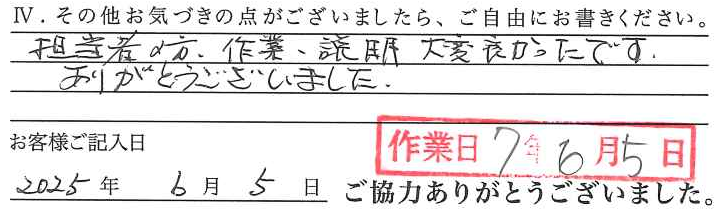 Ⅳ．その他お気づきの点がございましたら、ご自由にお書きください。
担当者の方、作業、説明 大変良かったです.
ありがとうございました.
お客様ご記入日
作業日 7年 6月 5日
2025年 6月 5日
ご協力ありがとうございました。